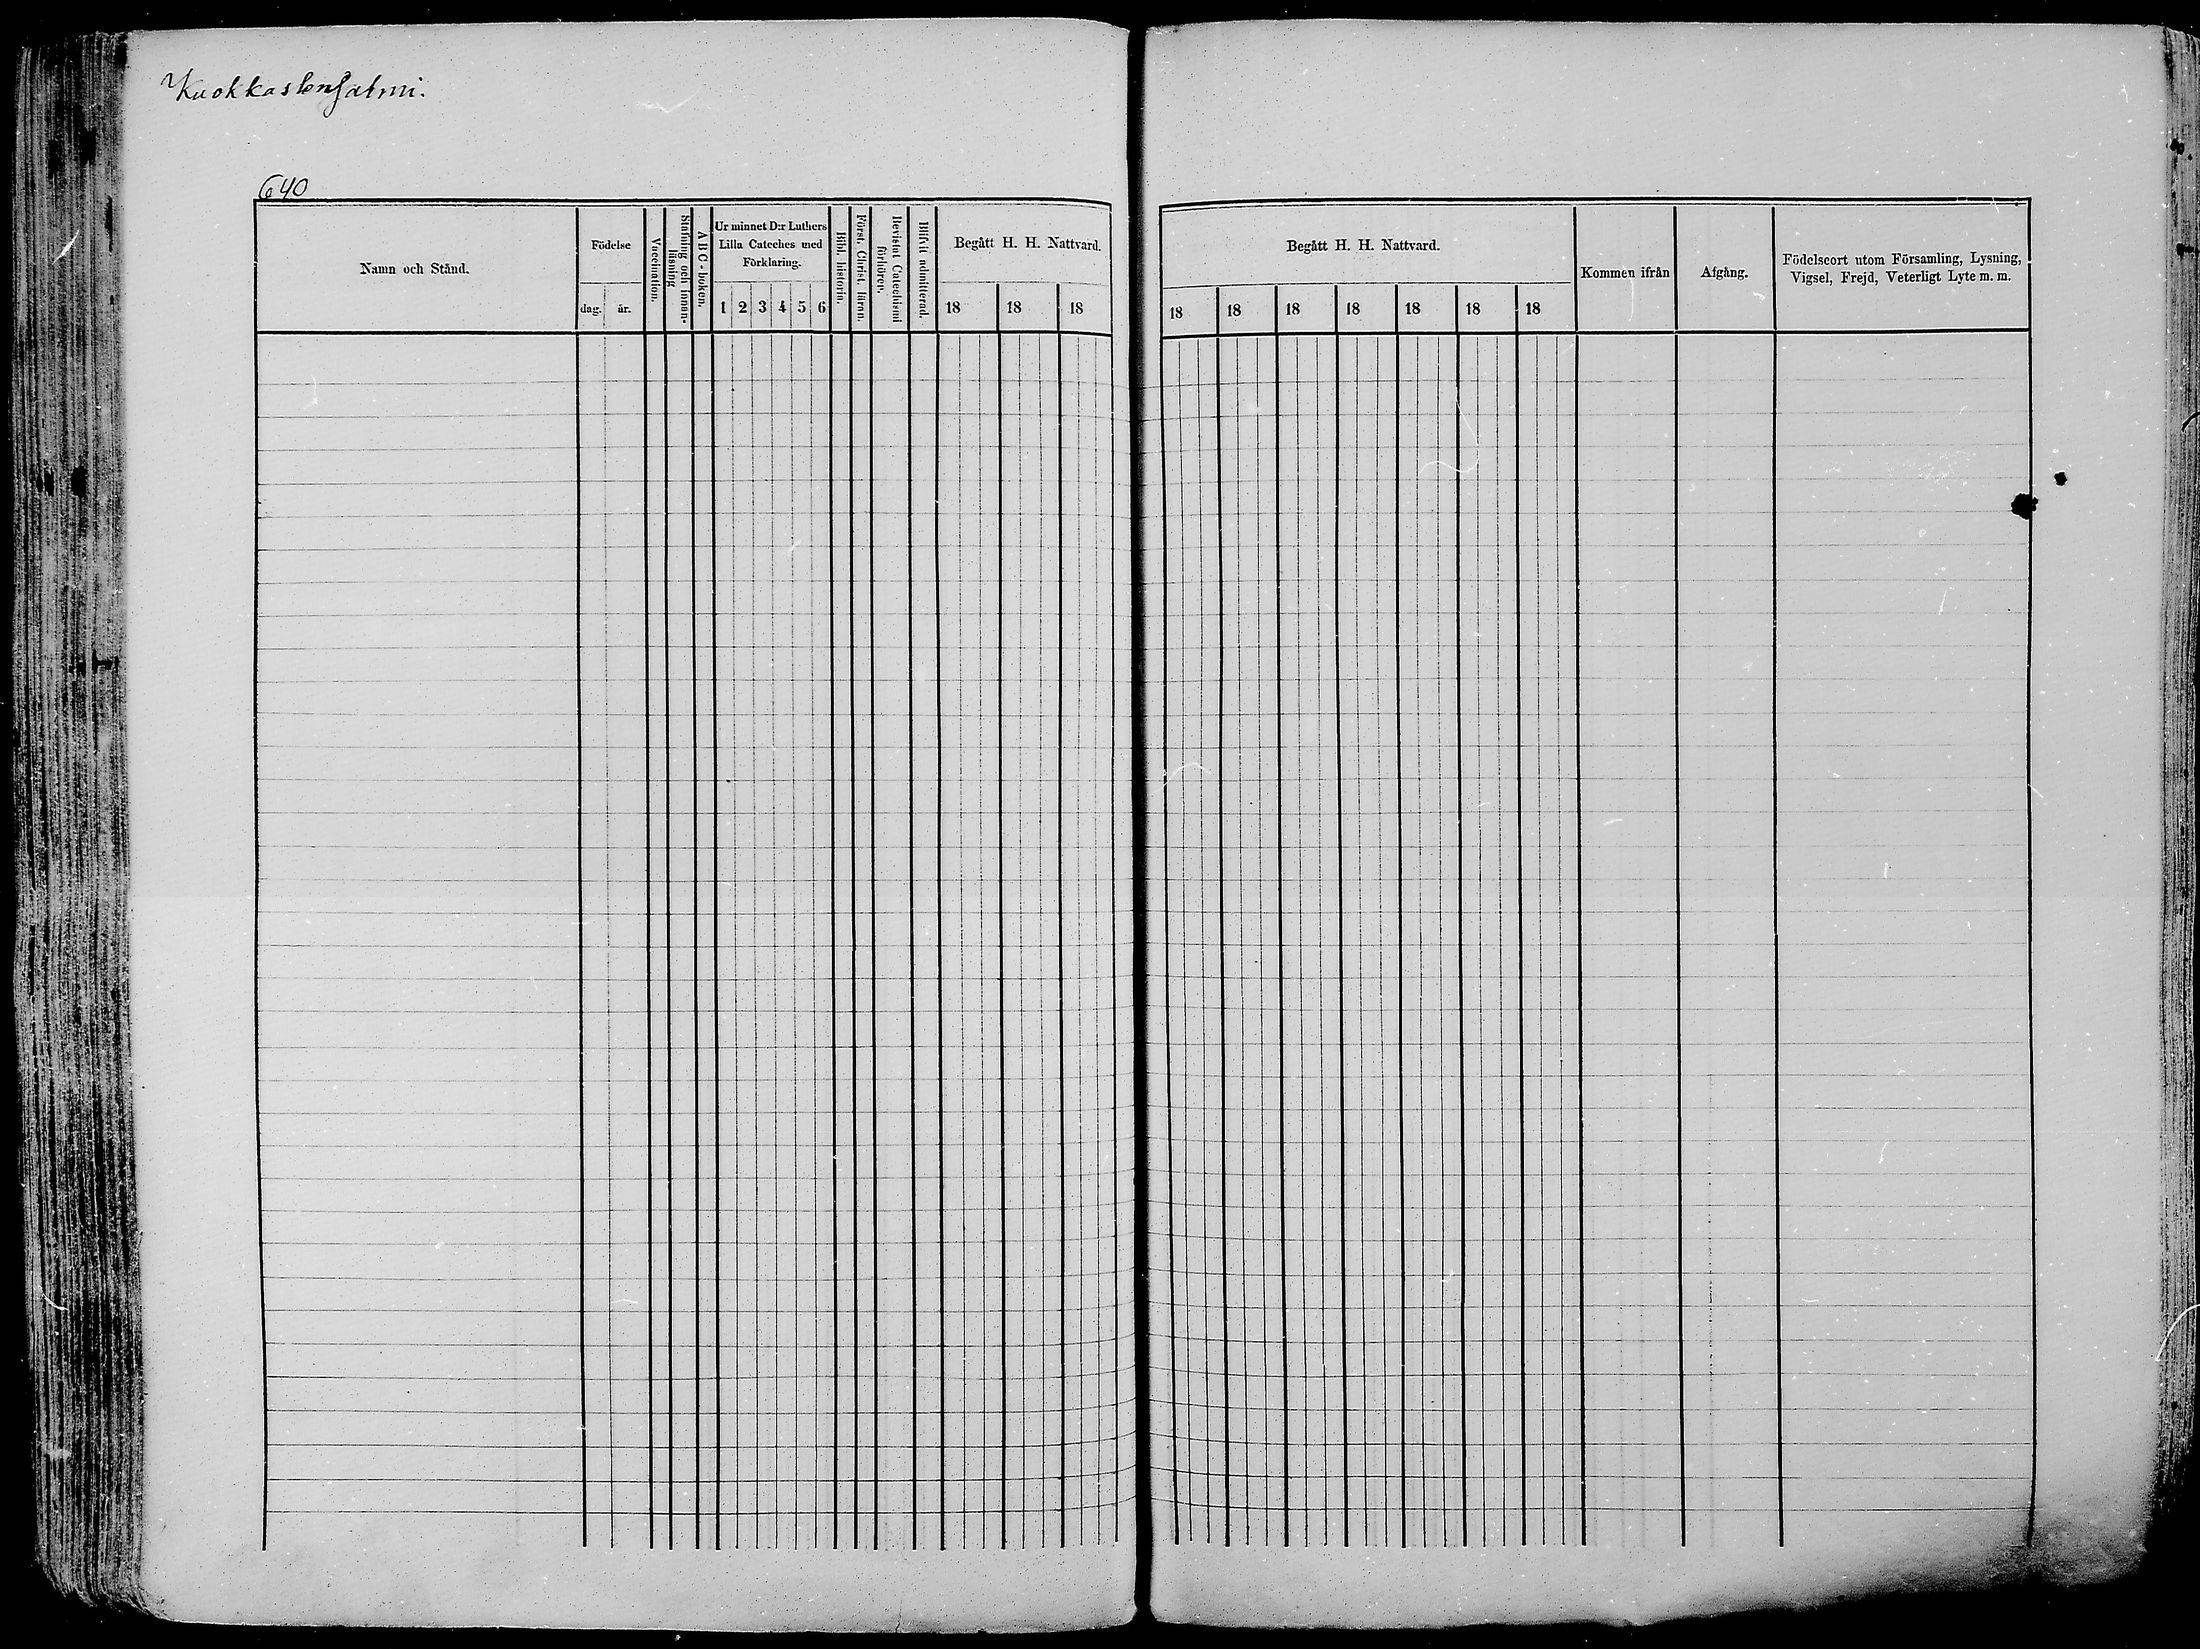 Kuokkastensalmi.
640
Namn och Stånd.
Födelse
dag. år.
Vaccination.
Stafning och innan-
läsning
A B C - boken.
Ur minnet D:r Luthers
Lilla Cateches med
Förklaring.
1 2 3 4 5 6
Bibl. historia.
Först. Christ. läran.
Bevistat Catechismi
förhören.
Blifvit admitterad.
Begått H. H. Nattvard.
18 18 18
Begått H. H. Nattvard.
18 18 18 18 18 18 18
Kommen ifrån
Afgång.
Födelseort utom Församling, Lysning,
Vigsel, Frejd, Veterligt Lyte m. m.